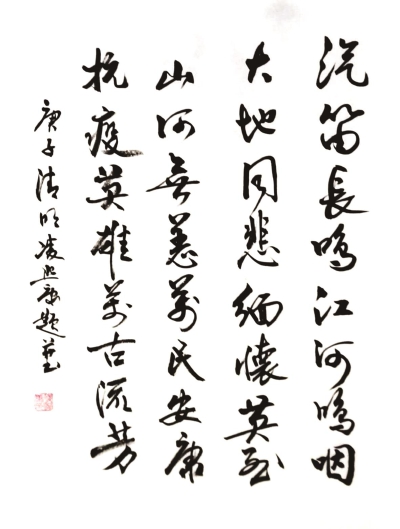 汽笛長鳴江河嗚咽
大地同悲緬懷英烈
山河無恙萬民安康
抗疫英雄萬古流芳
庚子清明凌康題